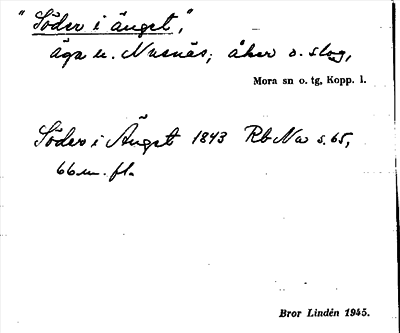 "Söder i ängst",
äga u. Nusnäs; åker o. slog,
Mora sn o. tg, Kopp. l.
Söder i Ängst 1843 Rb Na s. 65,
66 m. fl.
Bror Lindén 1945.